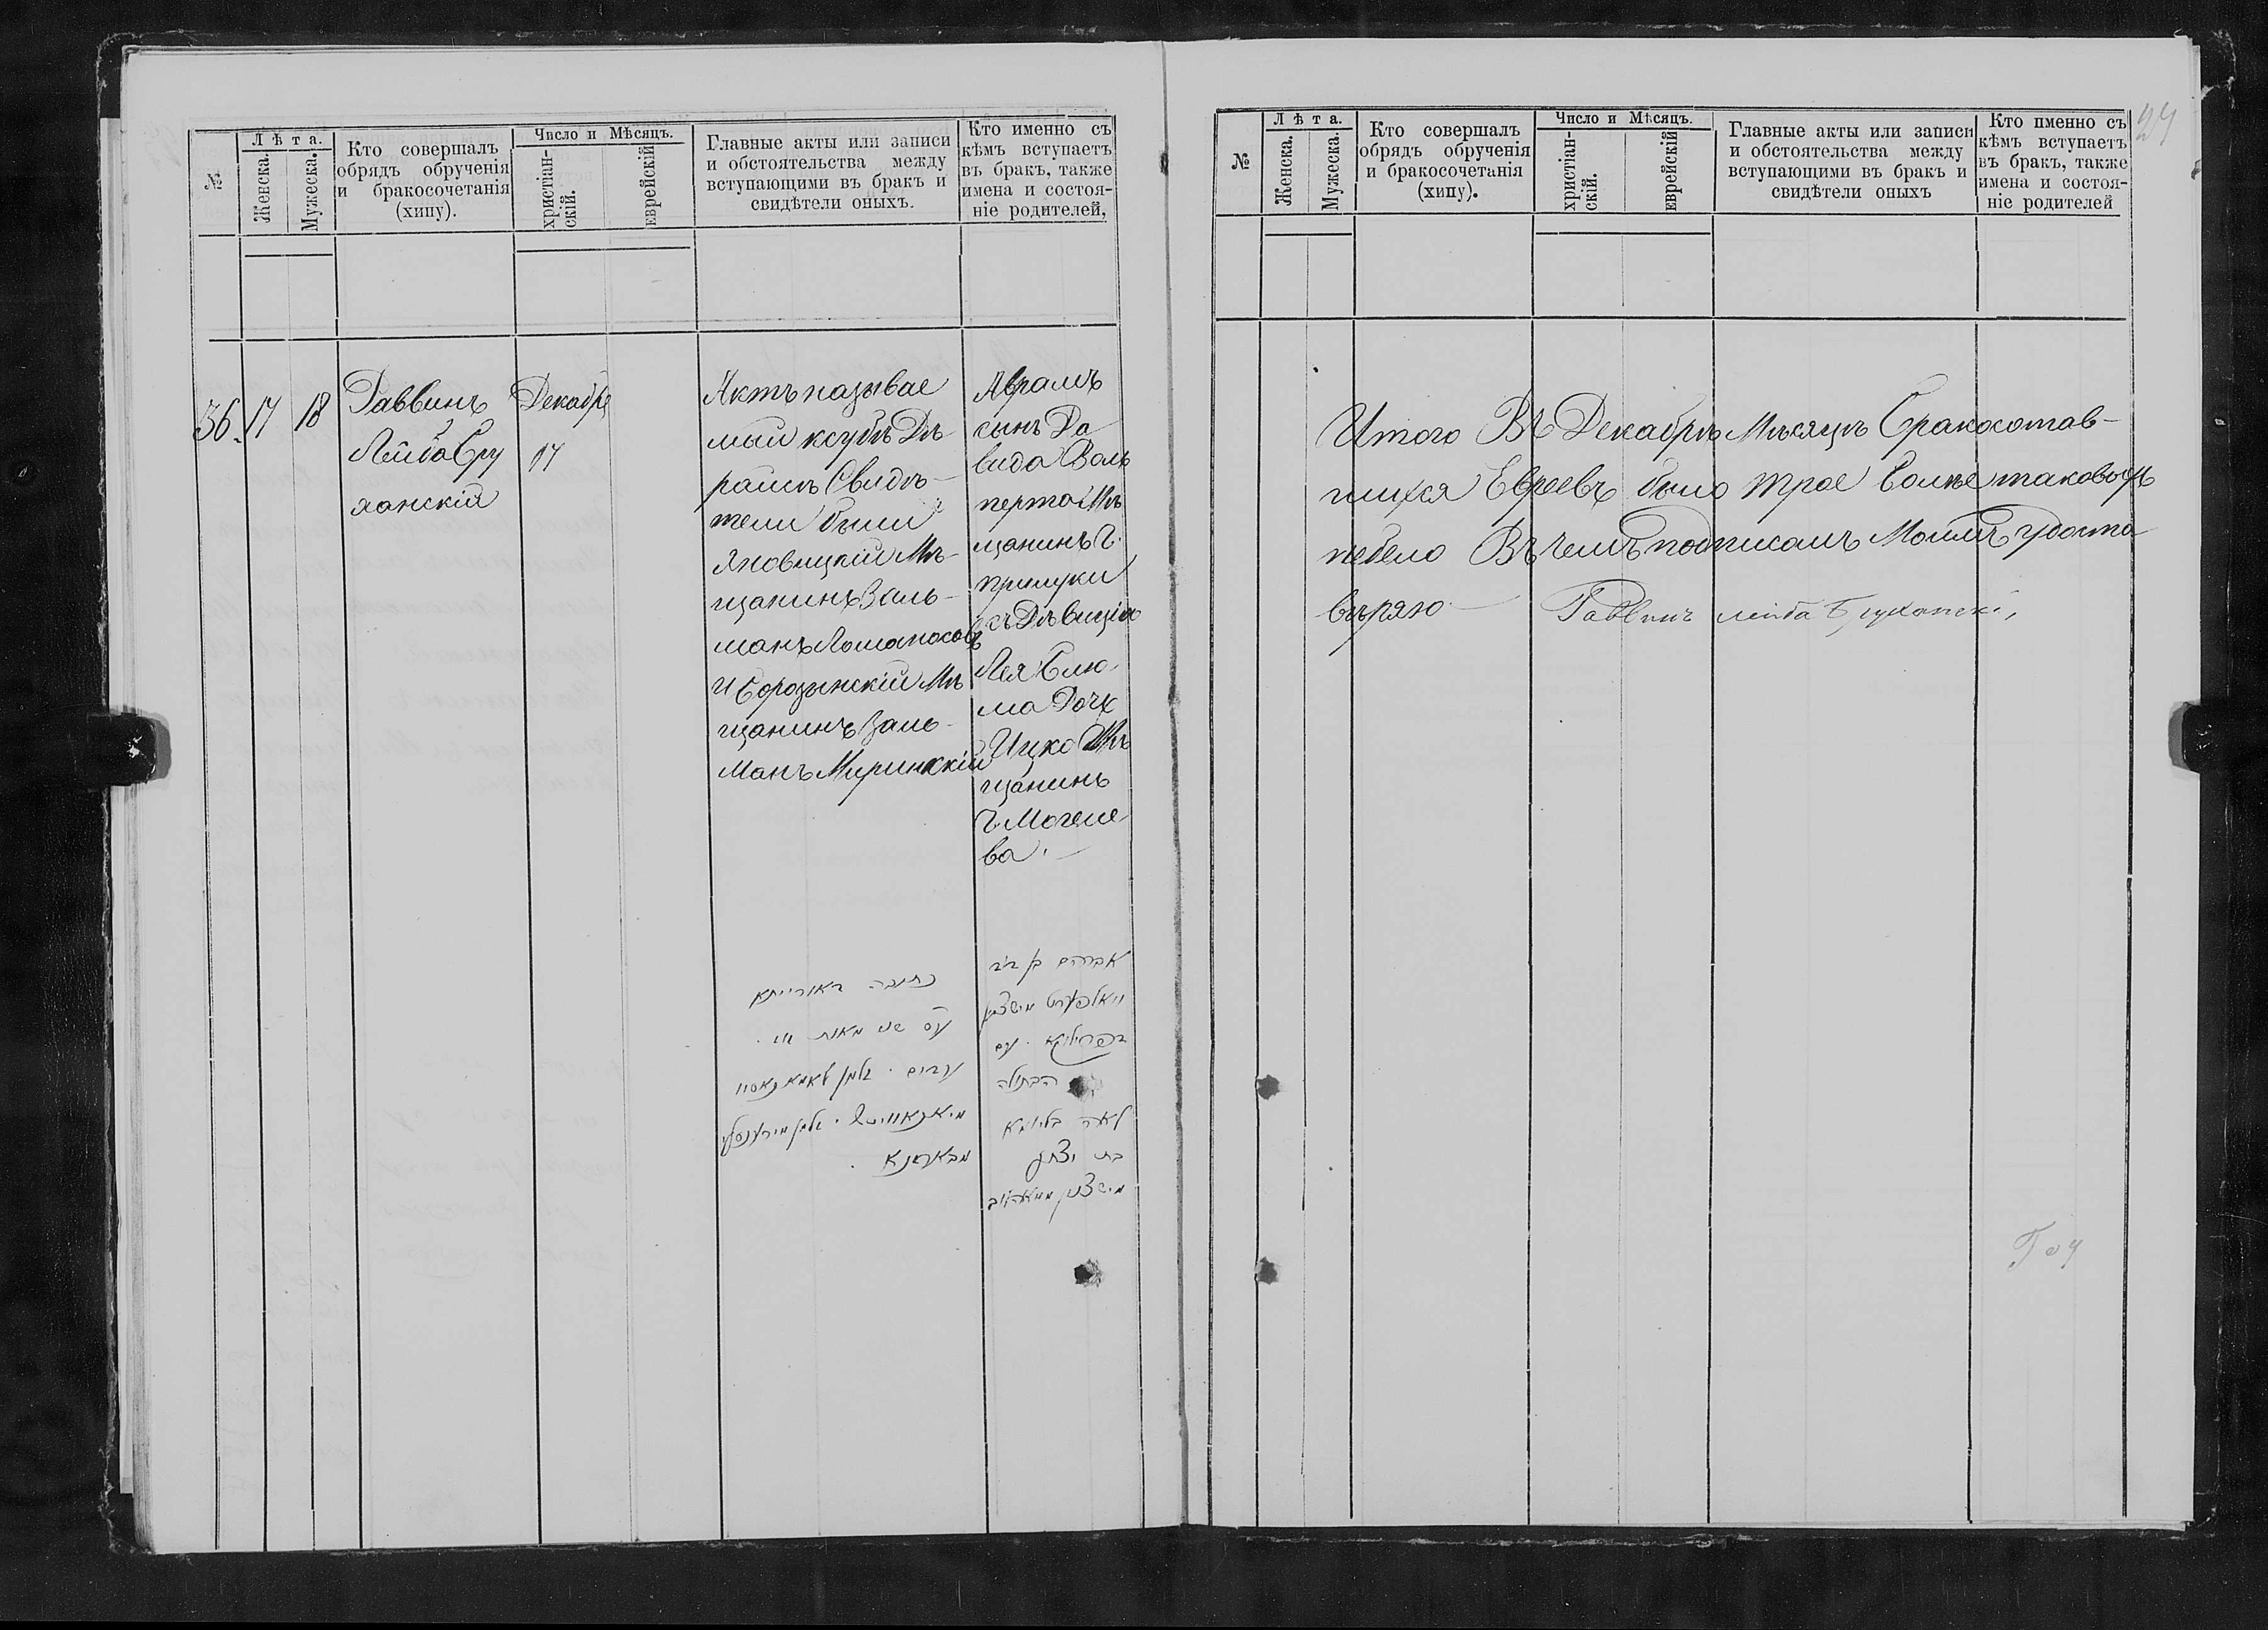 №
Лѣта.
Женска.
Мужеска.
Кто совершалъ
обрядъ обрученія
и бракосочетанія
(хипу).
Число и Мѣсяцъ.
христіан-
скій.
еврейскій
Главные акты или записи
и обстоятельства между
вступающими въ бракъ и
свидѣтели оныхъ.
Кто именно съ
кѣмъ вступаетъ
въ бракъ, также
имена и состоя-
ніе родителей,
36. 17 18
Раввинъ
Лейба Бру
ханскій
Декабря
17
Актъ называе
мый ксубъ Дъ
раисъ Свидѣ-
тели были
Яновицкій Мѣ-
щанинъ Заль-
манъ Ломаносовъ
И Борозынскій Мѣ
щанинъ Заль-
манъ Миринскій
Абрамъ
сынъ Да
вида Воль
перта Мѣ
щанинъ г.
Прилуки
съ Дѣвицію
Лея Блю-
ма Дочъ
Ицко Мѣ
щанинъ
г. Могиле
ва.
כתובה דאורייתא
עם שני מאות
עדים . זלמן לאמאנאסאוו
אברהם בן דוד
וואלפערט מישצאנין
עם
הבתולה
לאה בליומא
בת יצחק
מישצאנין
№
Лѣта.
Женска.
Мужеска.
Кто совершалъ
обрядъ обрученія
и бракосочетанія
(хипу).
Число и Мѣсяцъ.
христіан-
скій.
еврейскій
Главные акты или записи
и обстоятельства между
вступающими въ бракъ и
свидѣтели оныхъ
Кто именно съ
кѣмъ вступаетъ
въ бракъ, также
имена и состоя-
ніе родителей
Итого Въ Декабрѣ Мѣсяцѣ Бракосотав-
шихся Евреевъ было трое Болѣе таковыхъ
небело Въ чемъ подписомъ Моимъ удоста
вѣряю
Раввинъ Лейба Бруханскі,